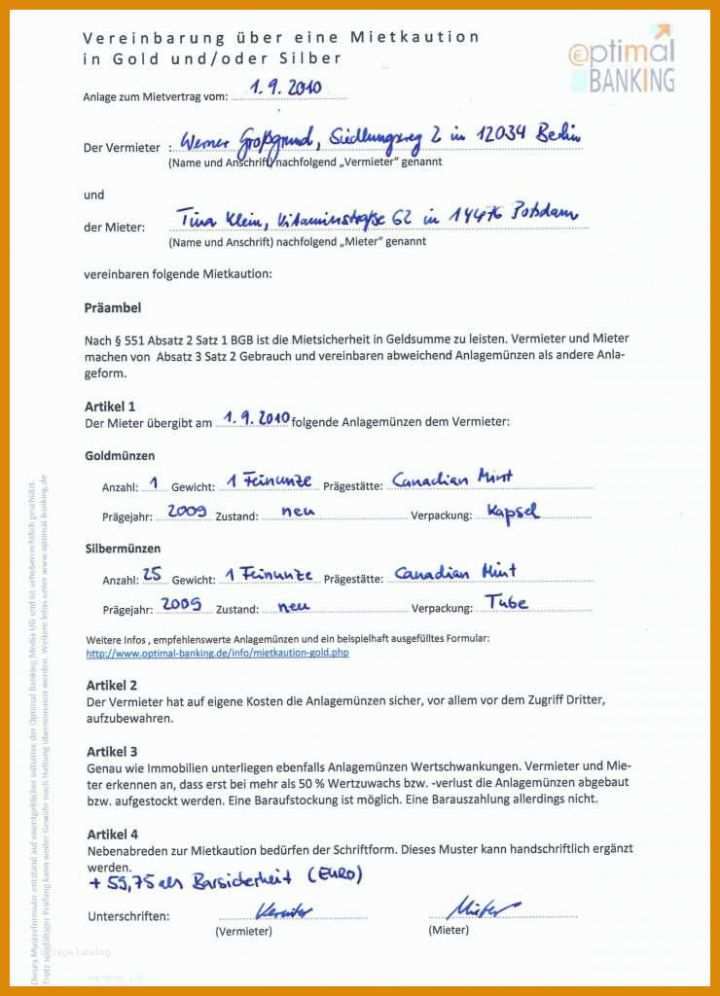 Vereinbarung über eine Mietkaution
in Gold und/oder Silber
optimal
BANKING
Anlage zum Mietvertrag vom: 1.9.2010
Der Vermieter : Werner Großgrund, Siedlungsweg 2 in 12034 Berlin
(Name und Anschrift) nachfolgend „Vermieter" genannt
und
der Mieter: Tina Klein, Vitaminstraße 62 in 14476 Potsdam
(Name und Anschrift) nachfolgend „Mieter" genannt
vereinbaren folgende Mietkaution:
Präambel
Nach § 551 Absatz 2 Satz 1 BGB ist die Mietsicherheit in Geldsumme zu leisten. Vermieter und Mieter
machen von Absatz 3 Satz 2 Gebrauch und vereinbaren abweichend Anlagemünzen als andere Anla-
geform.
Artikel 1
Der Mieter übergibt am 1.9.2010 folgende Anlagemünzen dem Vermieter:
Goldmünzen
Anzahl: 1 Gewicht: 1 Feinunze Prägestätte: Canadian Mint
Prägejahr: 2009 Zustand: neu Verpackung: Kapsel
Silbermünzen
Anzahl: 25 Gewicht: 1 Feinunze Prägestätte: Canadian Mint
Prägejahr: 2009 Zustand: neu Verpackung: Tube
Weitere Infos , empfehlenswerte Anlagemünzen und ein beispielhaft ausgefülltes Formular:
http://www.optimal-banking.de/info/mietkaution-gold.php
Artikel 2
Der Vermieter hat auf eigene Kosten die Anlagemünzen sicher, vor allem vor dem Zugriff Dritter,
aufzubewahren.
Artikel 3
Genau wie Immobilien unterliegen ebenfalls Anlagemünzen Wertschwankungen. Vermieter und Mie-
ter erkennen an, dass erst bei mehr als 50 % Wertzuwachs bzw. -verlust die Anlagemünzen abgebaut
bzw. aufgestockt werden. Eine Baraufstockung ist möglich. Eine Barauszahlung allerdings nicht.
Artikel 4
Nebenabreden zur Mietkaution bedürfen der Schriftform. Dieses Muster kann handschriftlich ergänzt
werden.
+ 59,75 als Barsicherheit (EURO)
Unterschriften: Vermieter Mieter
(Vermieter) (Mieter)
Dieses Musterformular entstand auf unentgeltlicher Initiative der Optimal Banking Media UG und ist urheberrechtlich geschützt.
Trotz sorgfältiger Prüfung kann weder Gewähr noch Haftung übernommen werden. Weitere Infos unter www.optimal-banking.de